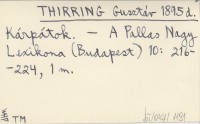 THIRRING Gusztáv 1895 d.
Kárpátok. — A Pallas Nagy
Lexikona (Budapest) 10: 216-
-224, 1 m.
TM